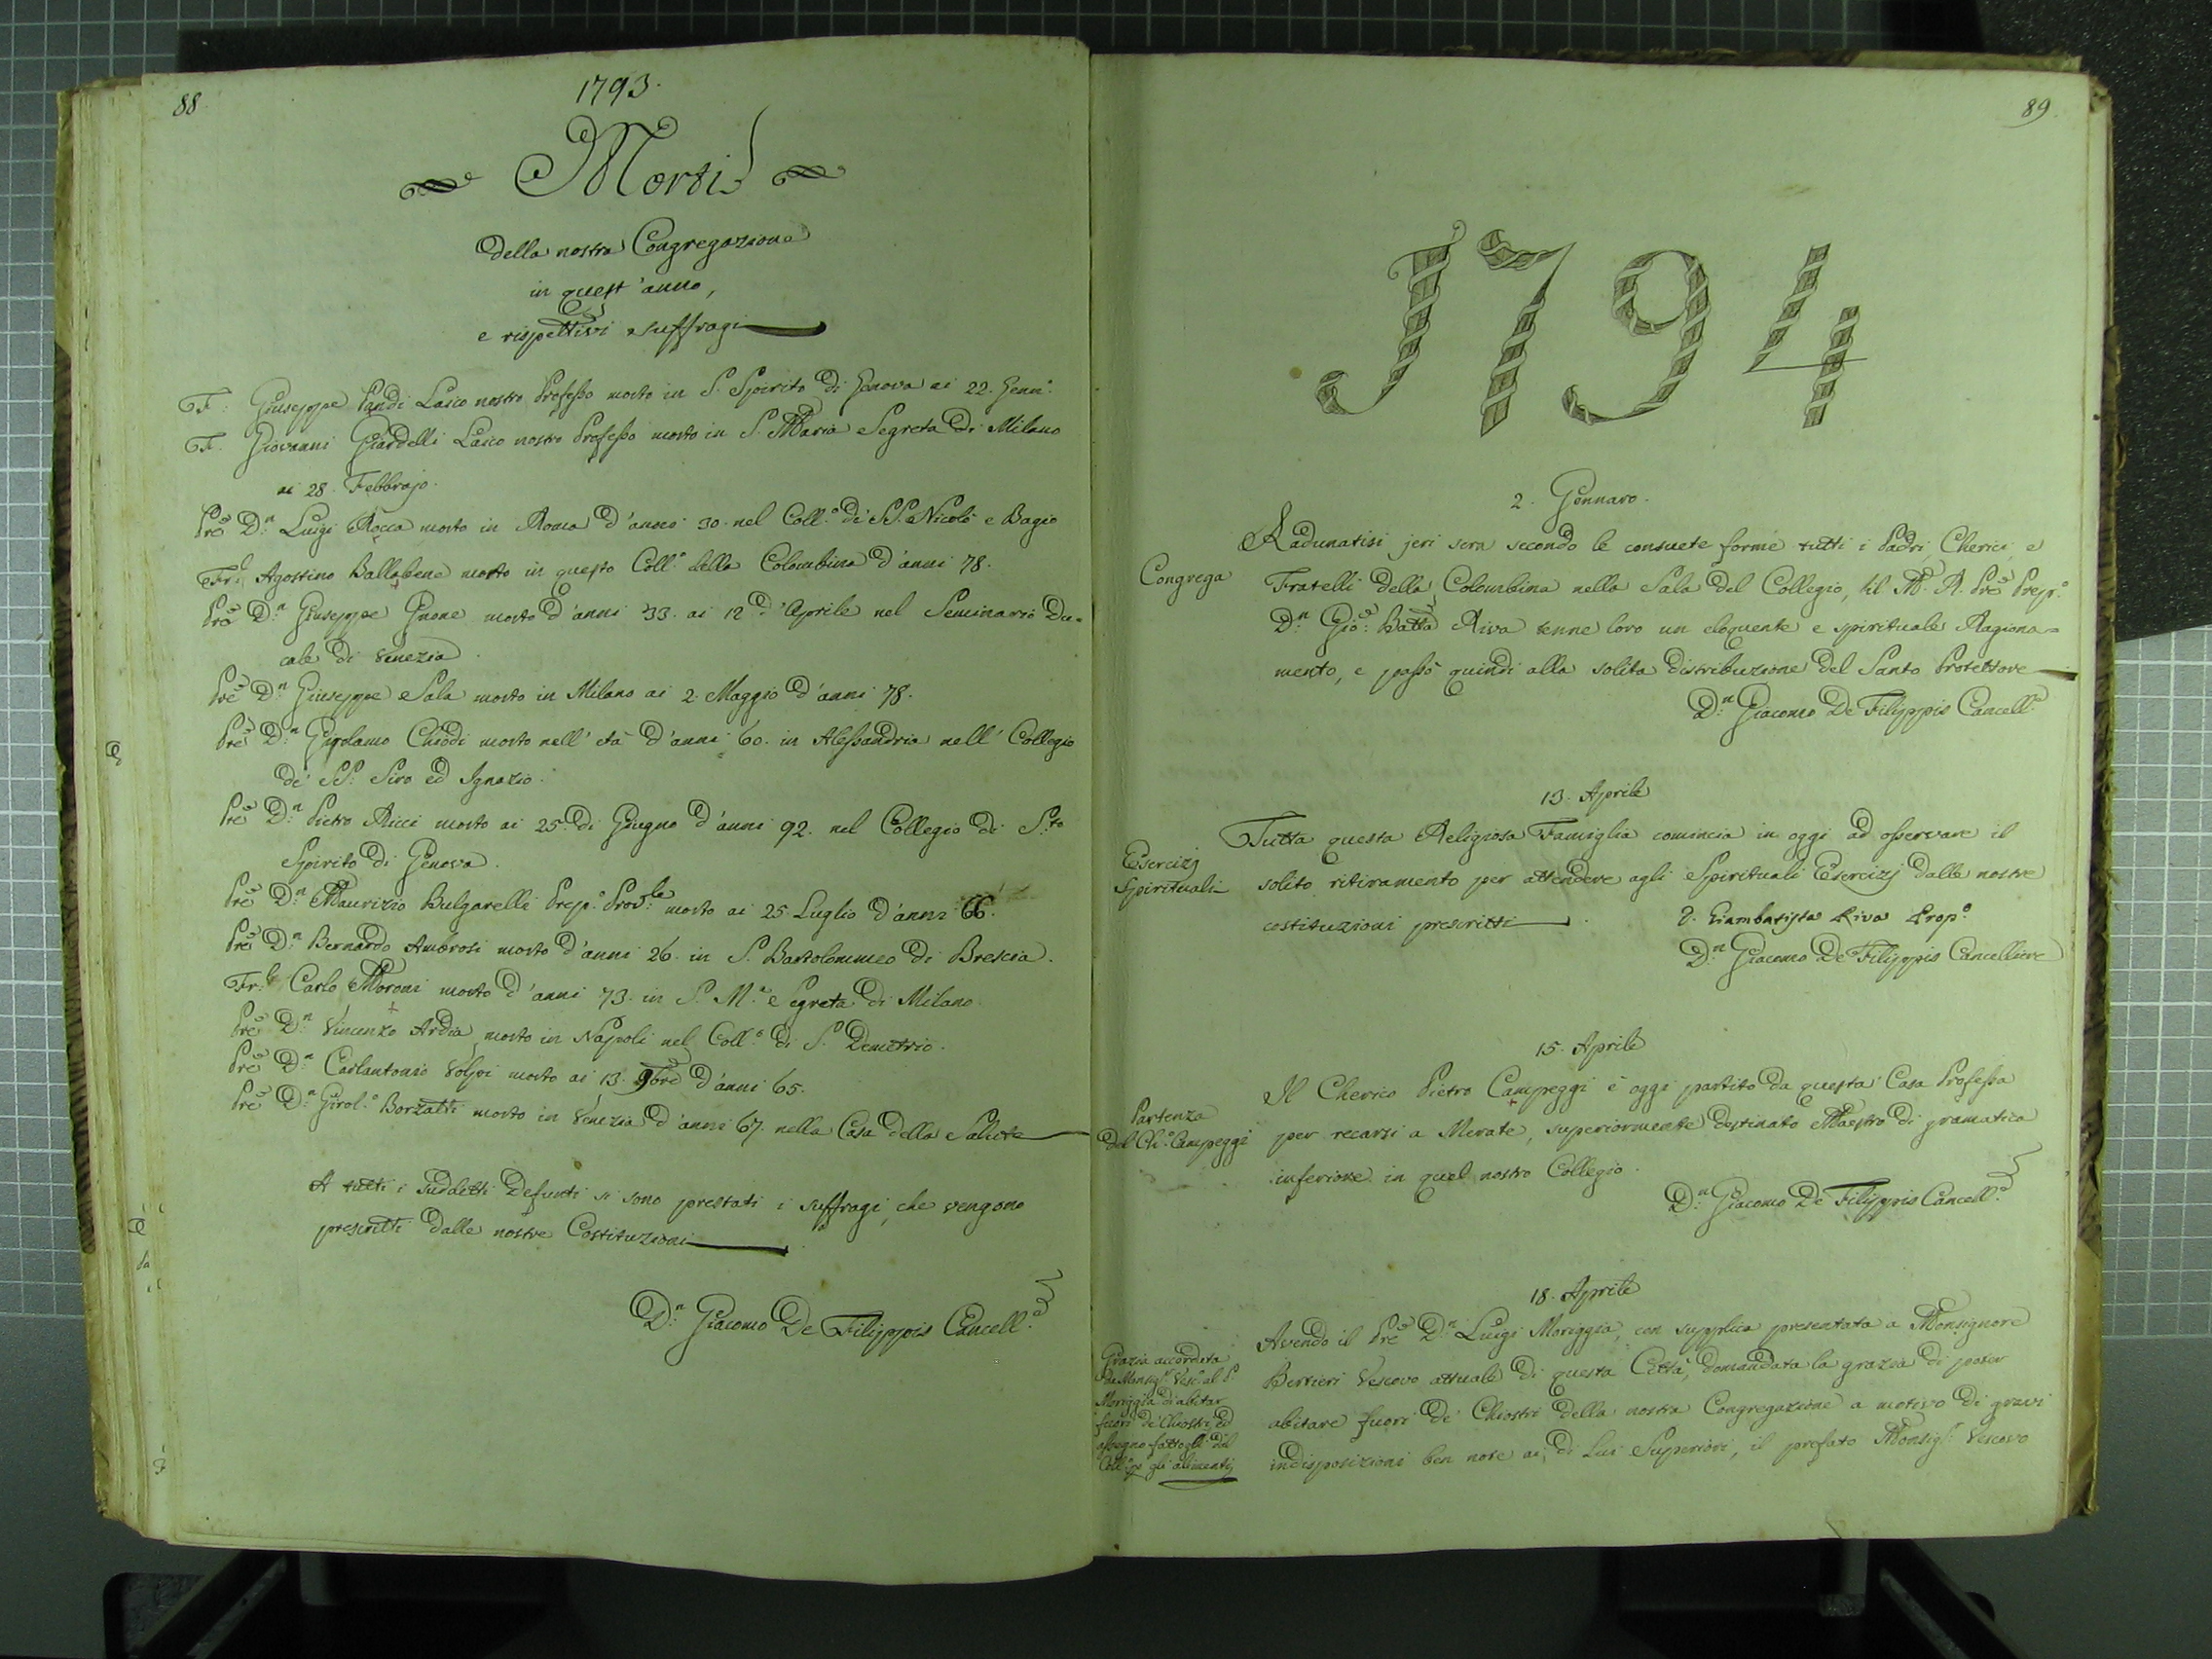 88
1793.
Morti
della nostra Congregazione
in quest'anno,
e rispettivi suffragi
F. Giuseppe Pandi Laico nostro Professo morto in S. Spirito di Genova ai 22. Genn.o
F. Giovanni Giardelli Laico nostro Professo morto in S. Maria Segreta di Milano
ai 28. Febbrajo.
Pre D.n Luigi Rocca morto in Roma d'anni 30. nel Coll.o di SS. Nicolò e Bagio
Fr. Agostino Ballabene morto in questo Coll.o della Colombina d'anni 78.
Pre D.n Giuseppe Gnone morto d'anni 33. ai 12 d'Aprile nel Seminario Du=
cale di Venezia.
Pre D.n Giuseppe Sala morto in Milano ai 2 Maggio d'anni 78.
Pre D.n Girolamo Chiodi morto nell'età d'anni 60. in Alessandria nell' Collegio
de' SS. Siro ed Ignazio.
Pre D.n Pietro Ricci morto ai 25. di Giugno d'anni 92. nel Collegio di S.to
Spirito di Genova.
Pre D.n Maurizio Bulgarelli Prep.o Prov.le morto ai 25 Luglio d'anni 66.
Pre D.n Bernardo Ambrosi morto d'anni 26. in S. Bartolommeo di Brescia.
Fr. Carlo Moroni morto d'anni 73. in S. M.a Segreta di Milano.
Pre D.n Vincenzo Ardia morto in Napoli nel Coll.o di S. Demetrio.
Pre D.n Carlantonio Volpi morto ai 13. 9bre d'anni 65.
Pre D.n Girol.o Borzatti morto in Venezia d'anni 67. nella Casa della Salute
A tutti i suddetti Defunti si sono prestati i suffragi, che vengono
prescritti dalle nostre Costituzioni
D.n Giacomo De Filippis Cancell.e
89.
1794
2. Gennaro.
Radunatisi jeri sera secondo le consuete forme tutti i Padri, Cherici e
Congrega
Fratelli della Colombina nella Sala del Collegio, il M. R. Pre Prep.o
D.n Gio: Batta Riva tenne loro un eloquente e spirituale Ragiona=
mento, e passò quindi alla solita distribuzione del Santo Protettore
D.n Giacomo De Filippis Cancell.e
13. Aprile
Tutta questa Religiosa Famiglia comincia in oggi ad osservare il
Esercizj
Spirituali
solito ritiramento per attendere agli Spirituali Esercizj dalle nostre
costituzioni prescritti.
D. Giambatista Riva Prep.o
D.n Giacomo De Filippis Cancelliere
15. Aprile
Il Cherico Pietro Campeggi è oggi partito da questa Casa Professa
Partenza
del Ch.o Campeggi
per recarsi a Merate, superiormente destinato Maestro di gramatica
inferiore in quel nostro Collegio.
D.n Giacomo De Filippis Cancell.e
18. Aprile
Avendo il Pre D.n Luigi Moriggia, con supplica presentata a Monsignore
Grazia accordata
da Monsig.r Vesc.o al P.
Moriggia di abitar
fuori de' Chiostri, ed
assegno fattogli dal
Coll.o p. gli alimenti
Bertieri Vescovo attuale di questa Città, domandata la grazia di poter
abitare fuori de' Chiostri della nostra Congregazione a motivo di gravi
indisposizioni ben note ai di Lui Superiori, il prefato Monsig.r Vescovo